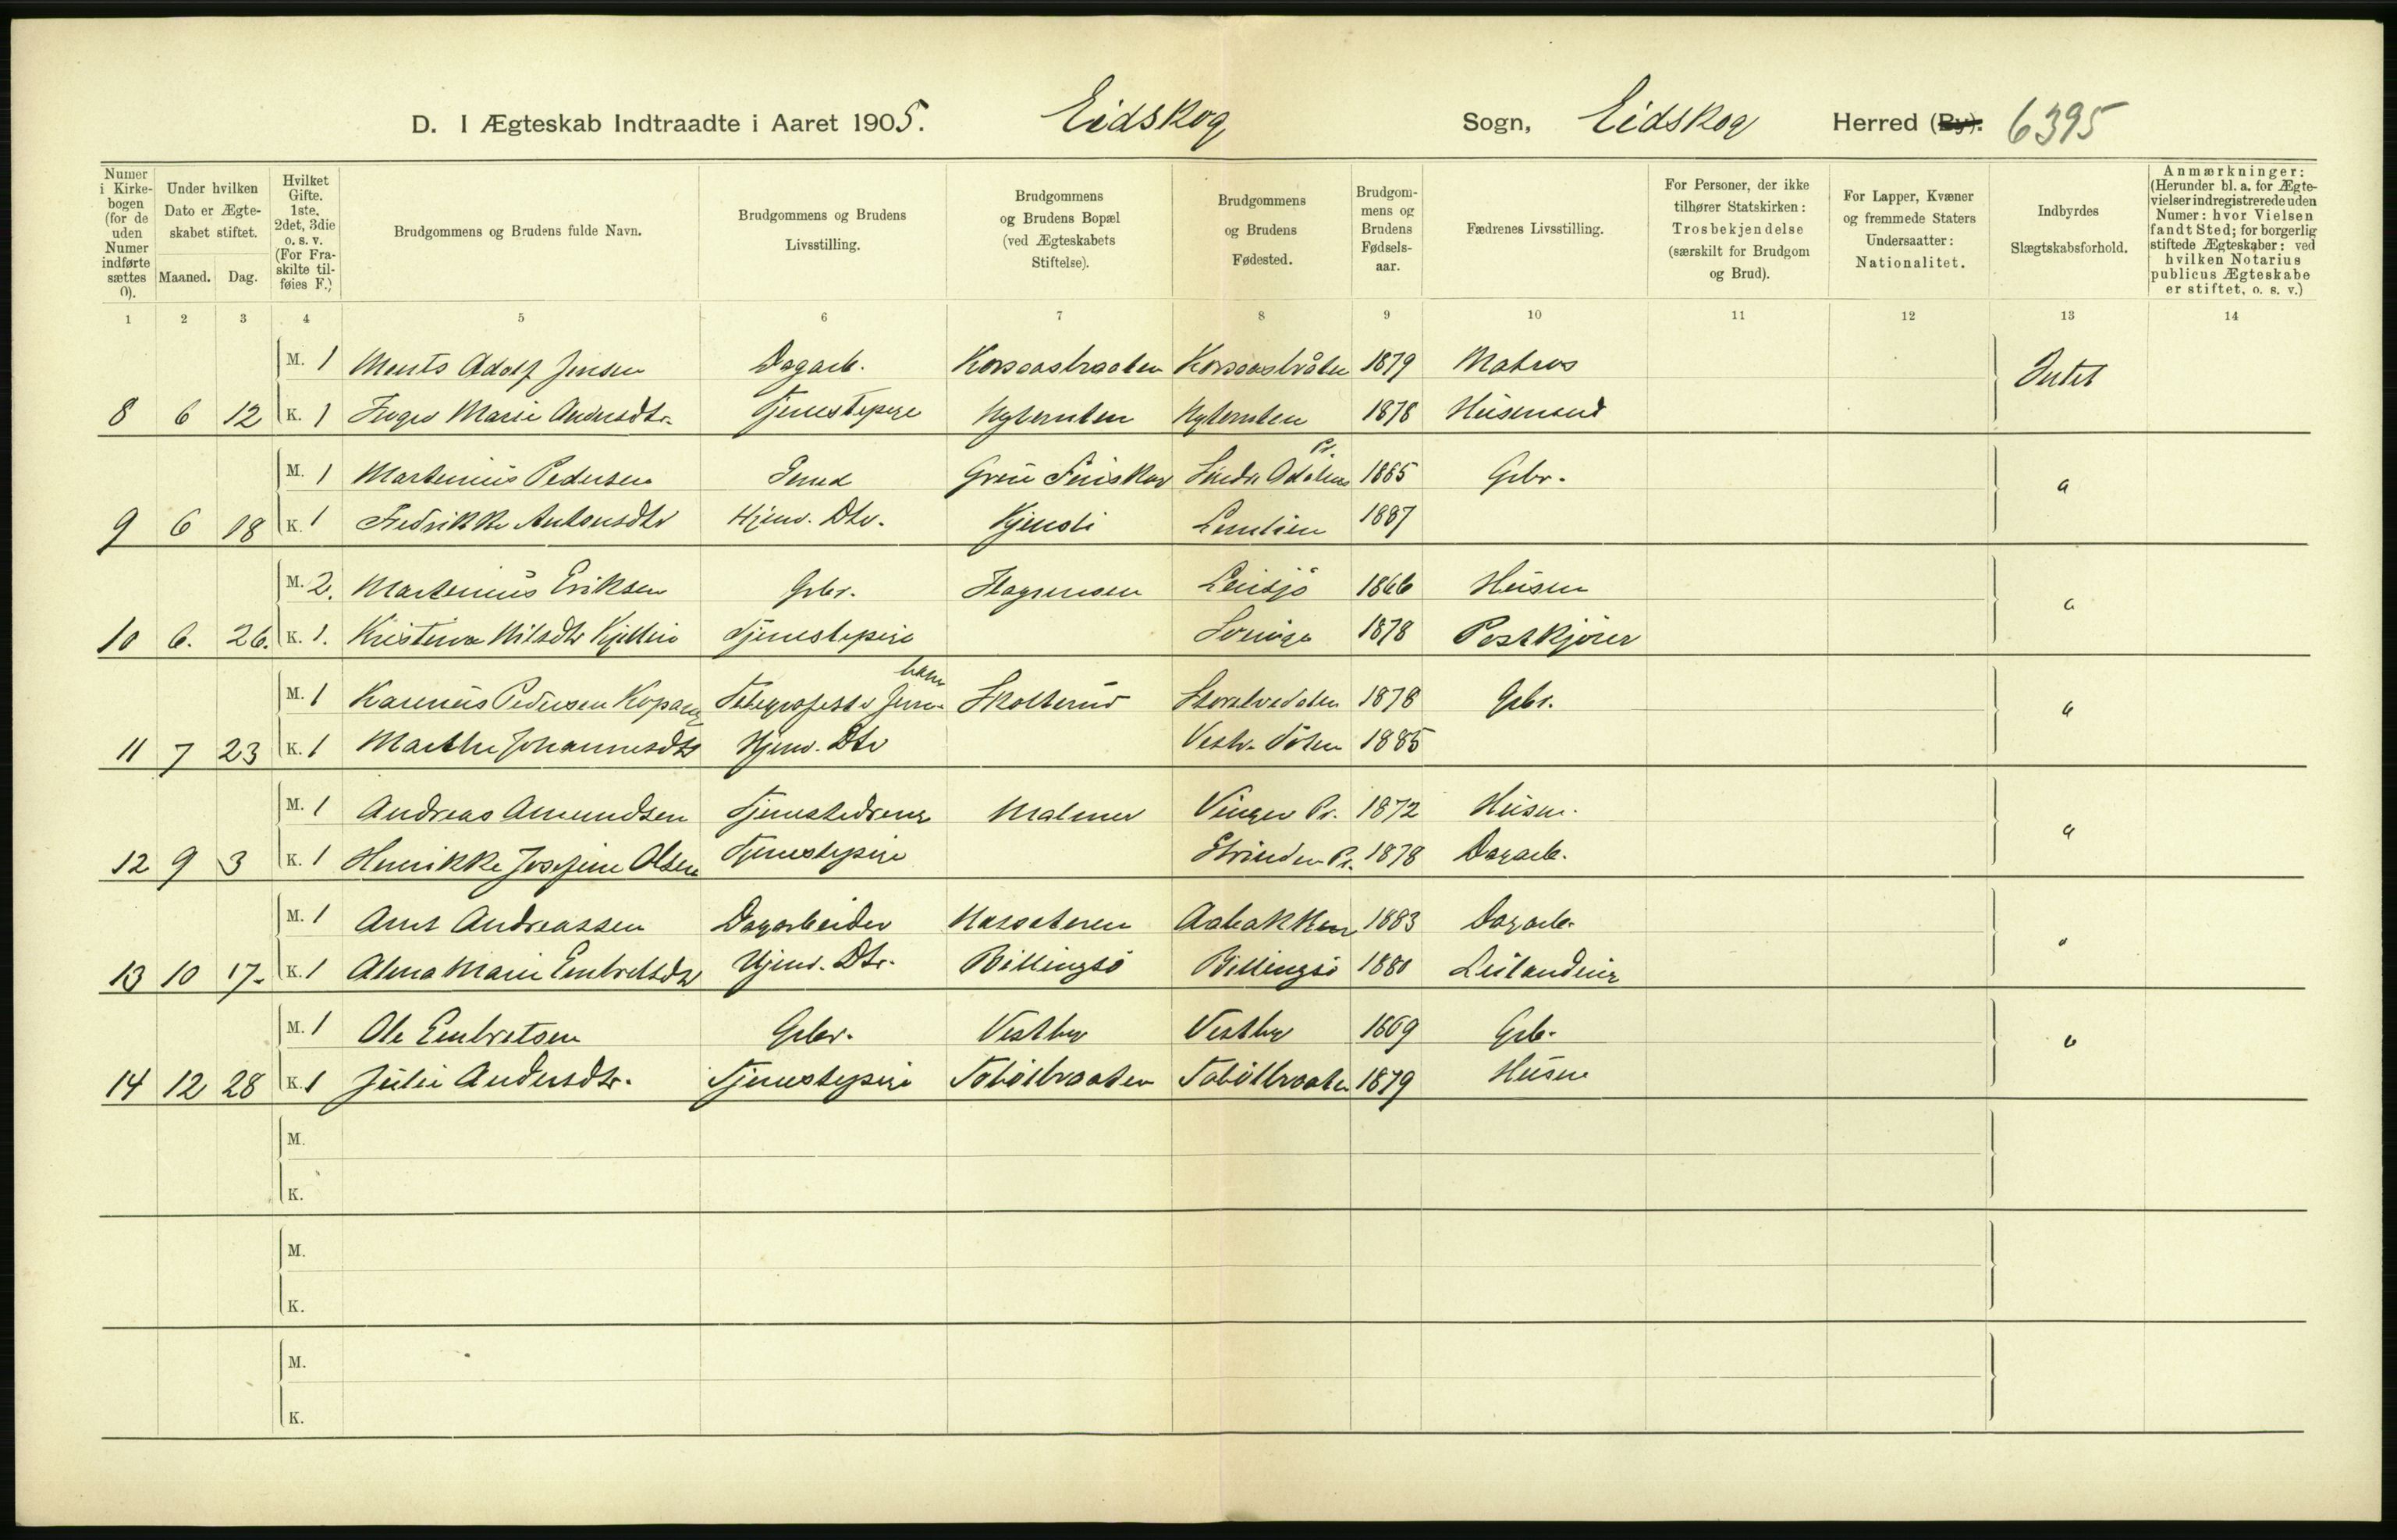 D. I Ægteskab Indtraadte i Aaret 1905. Eidskog Sogn, Eidskog Herred (By). 6395
Numer i Kirkebogen (for de uden Numer indførte sættes 0).
Under hvilken Dato er Ægteskabet stiftet.
Maaned. Dag.
Hvilket Gifte. 1ste, 2det, 3die o. s. v. (For Fraskilte tilføies F.)
Brudgommens og Brudens fulde Navn.
Brudgommens og Brudens Livsstilling.
Brudgommens og Brudens Bopæl (ved Ægteskabets Stiftelse).
Brudgommens og Brudens Fødested.
Brudgommens og Brudens Fødselsaar.
Fædrenes Livsstilling.
For Personer, der ikke tilhører Statskirken: Trosbekjendelse (særskilt for Brudgom og Brud).
For Lapper, Kvæner og fremmede Staters Undersaatter: Nationalitet.
Indbyrdes Slægtskabsforhold.
Anmærkninger: (Herunder bl. a. for Ægtevielser indregistrerede uden Numer: hvor Vielsen fandt Sted; for borgerlig stiftede Ægteskaber: ved hvilken Notarius publicus Ægteskabe er stiftet, o. s. v.)
1 2 3 4 5 6 7 8 9 10 11 12 13 14
M. 1 Adolf Jensen Dagarb. Korsaasbraaten Korsaasbråten 1879 Matros Intet
8 6 12 K. 1 Inger Marie Andersdtr. Tjenestepige 1878 Husmand
M. 1 Martinius Pedersen Smed Pr. 1865 Gbr. "
9 6 18 K. 1 Fredrikke Antonsdtr Hjemv. Dtr. 1887
M. 2. Martinius Eriksen Gbr. 1866 Husm "
10 6. 26. K. 1. Kristine Nilsdtr Tjenestepige 1878 Postkjører
M. 1 Karinius Pedersen Kopang Telegrafist v Jernbane Skotterud 1878 Gbr. "
11 7 23 K. 1 Marthe Johannesdtr Hjemv. Dtr 1885
M. 1 Andreas Amundsen Tjenestedreng Malmer Vinger Pr. 1872 Husm. "
12 9 3 K. 1 Henrikke Josefine Olsen Tjenestepige Strinden Pr. 1878 Dagarb.
M. 1 Arnt Andreassen Dagarbeider Aabakken 1883 Dagarb. "
13 10 17- K. 1 Alma Marie Embretsdtr Hjemv. Dtr. Billingsö Billingsö 1880 Leilænding
M. 1 Ole Embretsen Gbr. Vestby Vestby 1869 Gb. "
14 12 28 K. 1 Julie Andersdtr. Tjenestepige Tobölbraaten Tobölbraaten 1879 Husm
M.
K.
M.
K.
M.
K.